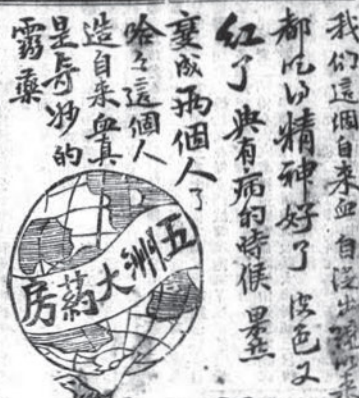 我们這個自来血自
都吃得精神好了皮色又
红了與有病的時候果然
變成兩個人了
哈々這個人
造自来血真
是奇妙的
靈藥
五洲大葯房